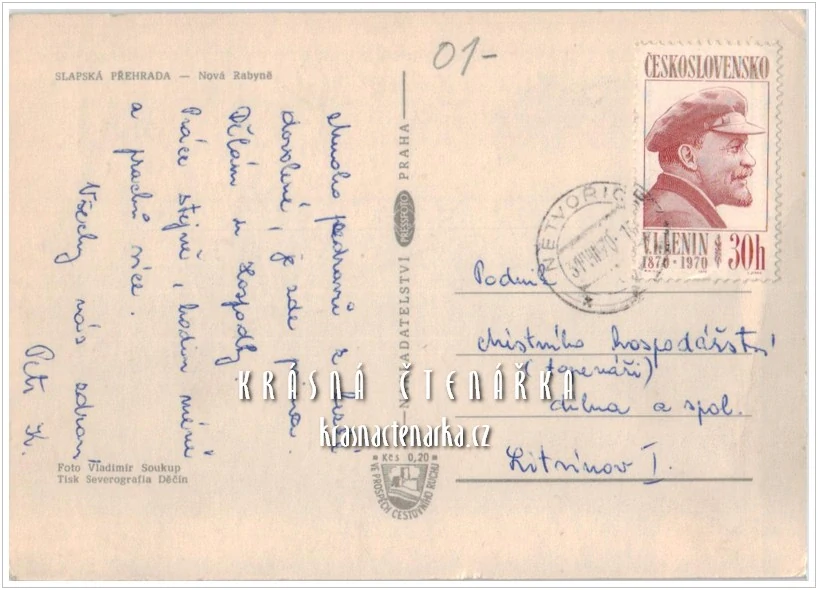 01-
SLAPSKÁ PŘEHRADA — Nová Rabyně
ČESKOSLOVENSKO
V.I.LENIN
1870·1970
30h
NETVOŘICE
Mnoho pozdravů z
dovolené, je zde
Dělám u Hospodky.
Práce stejně, hodin méně
a prachů více.
Všechny vás zdraví
Petr K.
NAKLADATELSTVÍ PRESSFOTO PRAHA
Podnik
místního hospodářství
(topenáři)
dílna a spol.
Litvínov I.
KRÁSNÁ ČTENÁŘKA
krasnactenarka.cz
Kčs 0,20
VE PROSPĚCH CESTOVNÍHO RUCHU
Foto Vladimír Soukup
Tisk Severografia Děčín